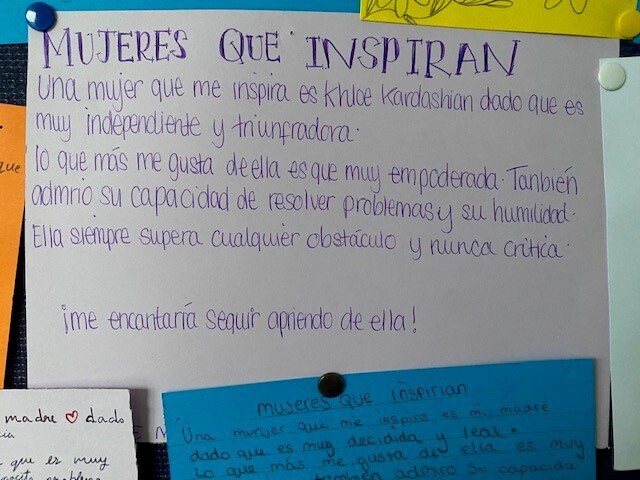 MUJERES QUE INSPIRAN
Una mujer que me inspira es Khloe Kardashian dado que es
muy independiente y triunfradora.
lo que más me gusta de ella es que muy empoderada. Tanbién
admiro su capacidad de resolver problemas y su humildad.
Ella siempre supera cualquier obstáculo y nunca critica.
¡me encantaría seguir apriendo de ella!
que
madre ♡ dado
que es muy
mujeres que inspirian
Una munjer que me inspira es mi madre
dado que es muy decidida y leal.
Lo que más me gusta de ella es muy
también admiro su capacida